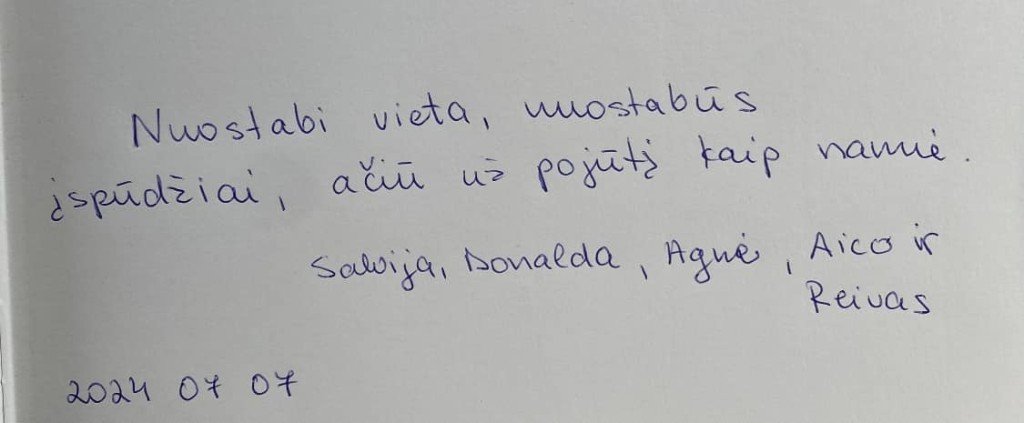 Nuostabi vieta, nuostabūs
įspūdžiai, ačiū už pojūtį kaip namie.
Salvija, Donalda, Agnė, Aico ir
Reivas
2024 07 07